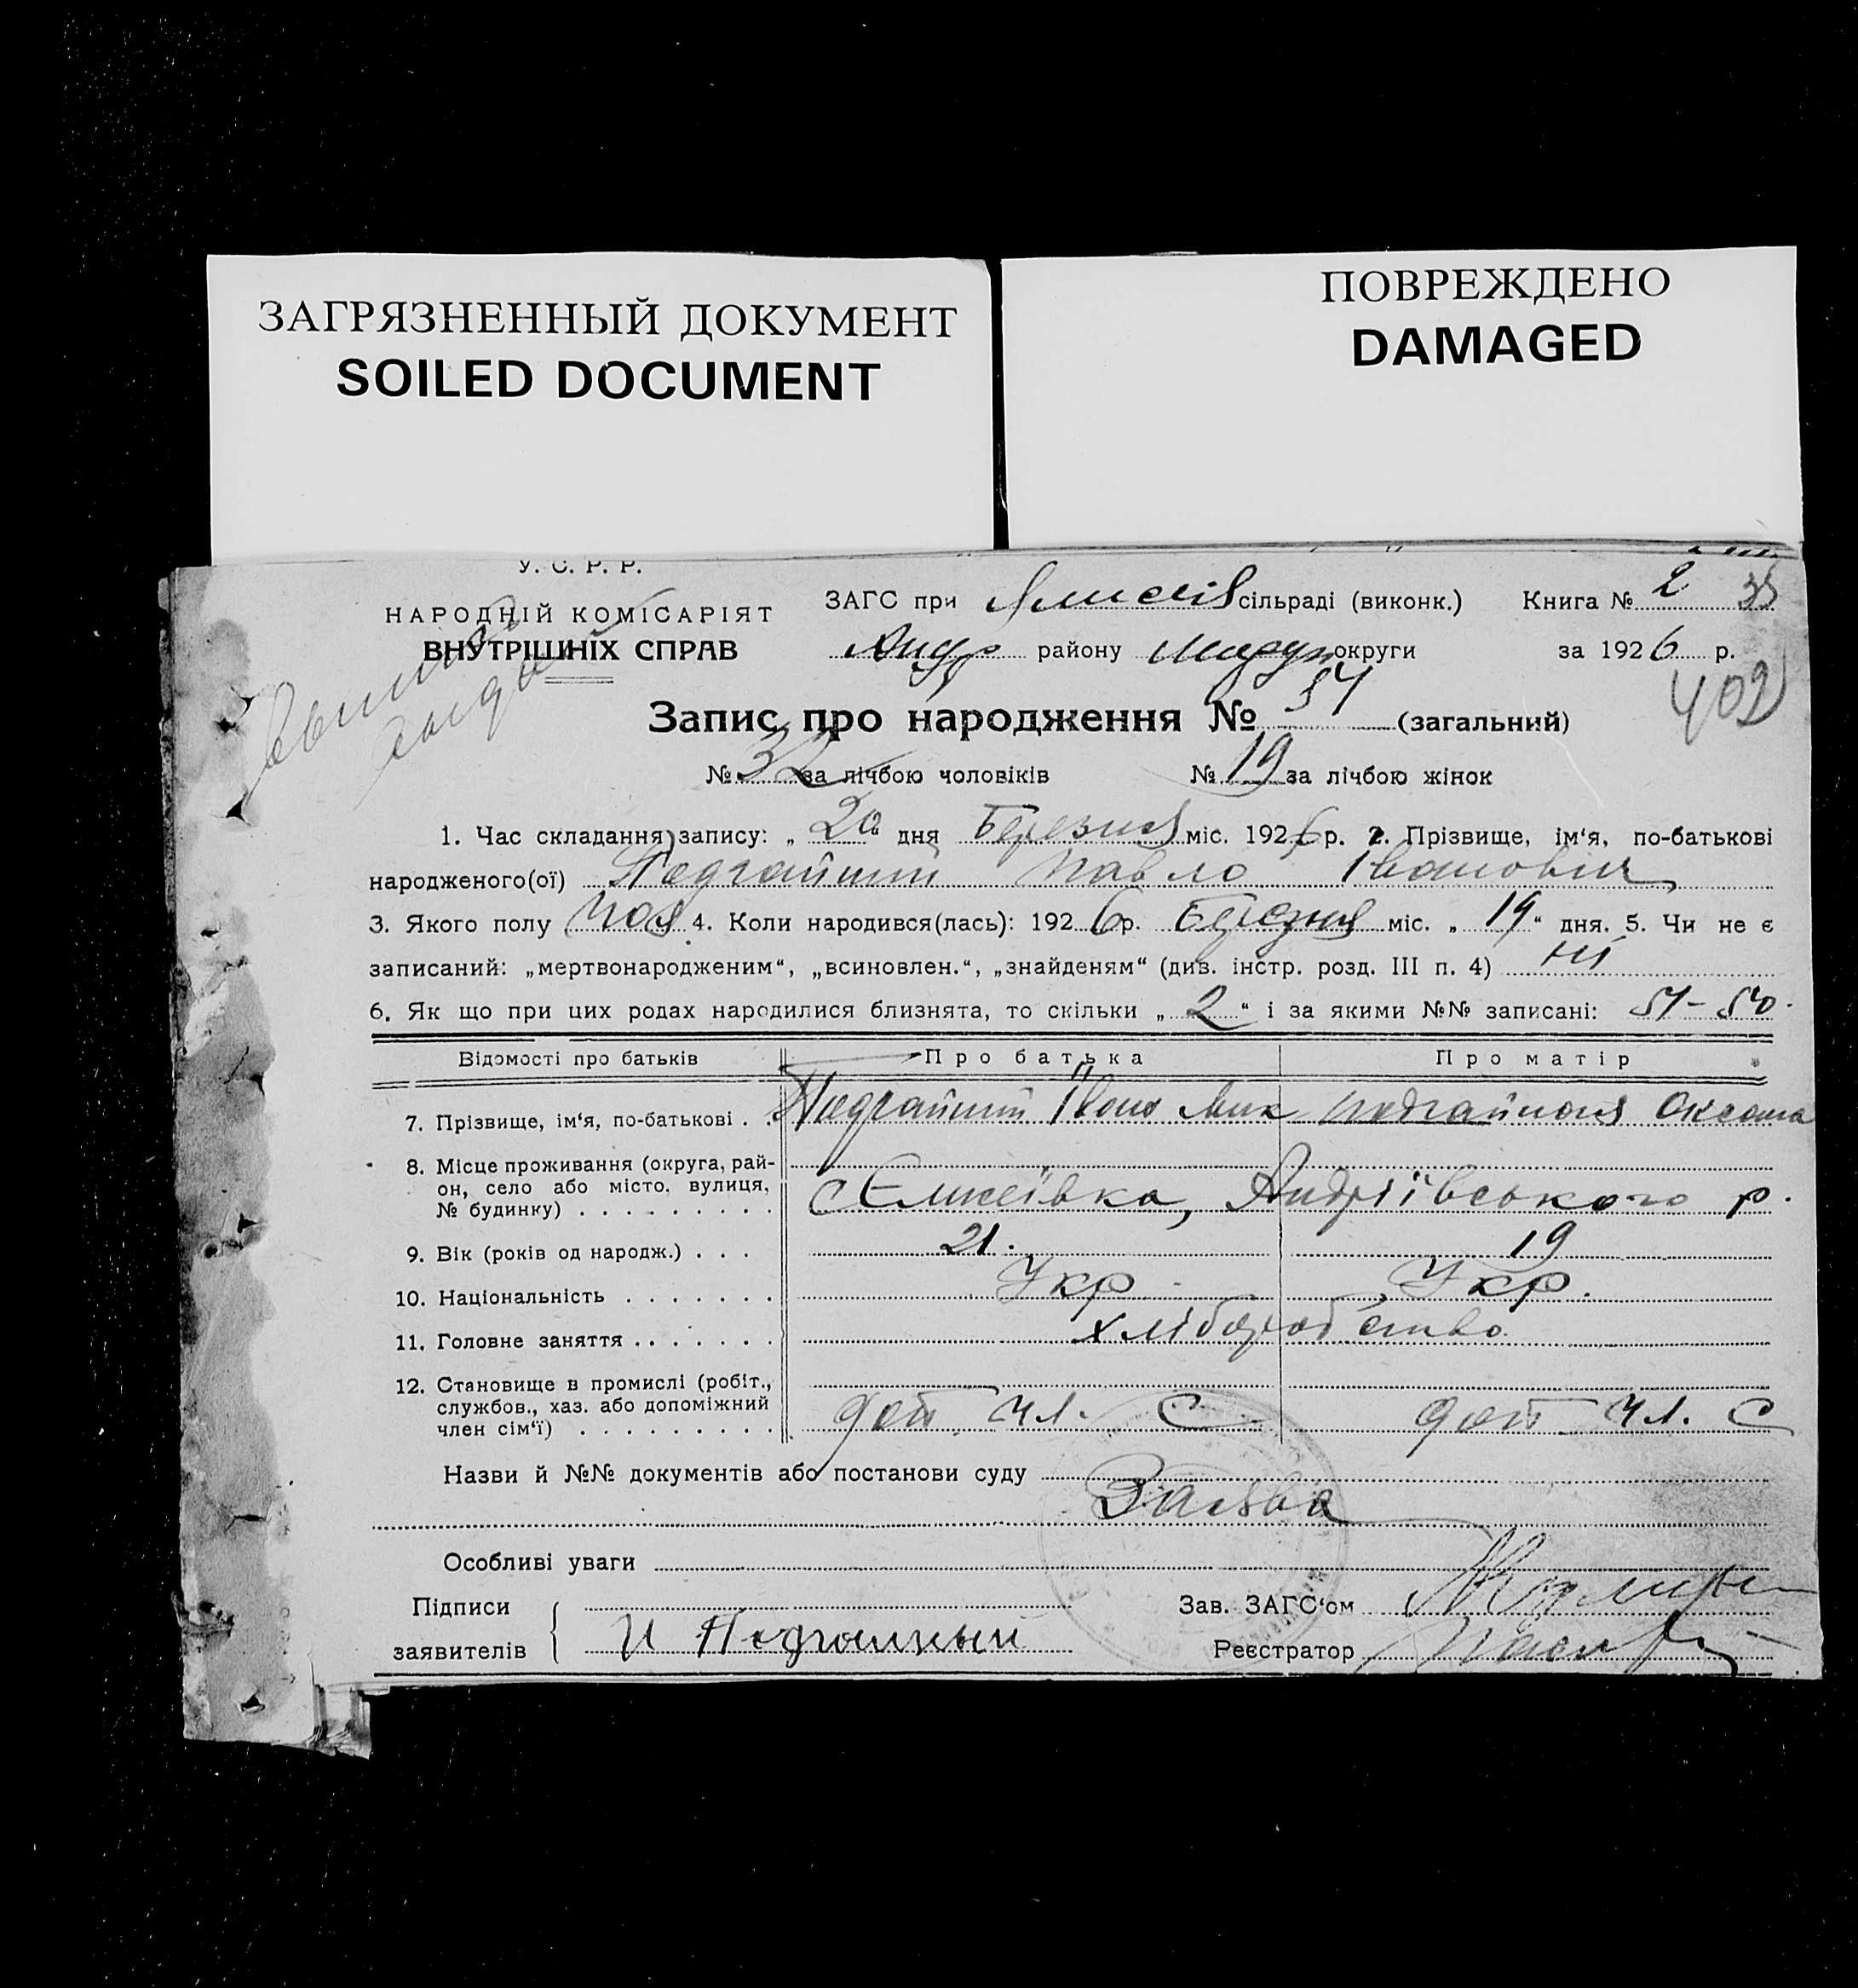 ЗАГРЯЗНЕННЫЙ ДОКУМЕНТ
SOILED DOCUMENT
ПОВРЕЖДЕНО
DAMAGED
У. С. Р. Р.
НАРОДНІЙ КОМІСАРІЯТ
ВНУТРІШНІХ СПРАВ
ЗАГС при сільраді (виконк.) Книга № 2 35
Андр району Мариуп округи за 1926 р.
402
Запис про народження № 51 (загальний)
№ 32 за лічбою чоловіків № 19 за лічбою жінок
1. Час складання запису: „ 20 “ дня Березня міс. 1926 р. 2. Прізвище, ім‘я, по-батькові
народженого(ої) Подгайний Павло Іванович
3. Якого полу чол 4. Коли народився(лась): 1926 р. Березня міс. „ 19 “ дня. 5. Чи не є
записаний: „мертвонародженим“, „всиновлен.“, „знайденям“ (див. інстр. розд. III п. 4) ні
6. Як що при цих родах народилися близнята, то скільки „ 2 “ і за якими №№ записані: 51-50.
Відомості про батьків Про батька Про матір
7. Прізвище, ім‘я, по-батькові . . Подгайний Іван Мик Подгайная Оксана
8. Місце проживання (округа, рай-
он, село або місто, вулиця,
№ будинку) . . . . . . . . . с Єлисеївка, Андріївського р.
9. Вік (років од народж.) . . . 21. 19
10. Національність . . . . . . . Укр. Укр.
11. Головне заняття . . . . . . . хліборобство
12. Становище в промислі (робіт.,
службов., хаз. або допоміжний
член сім‘ї) . . . . . . . . . доп. чл. С доп. чл. С
Назви й №№ документів або постанови суду
Заява
Особливі уваги
Підписи
заявителів И Подгайный
Зав. ЗАГС‘ом
Реєстратор